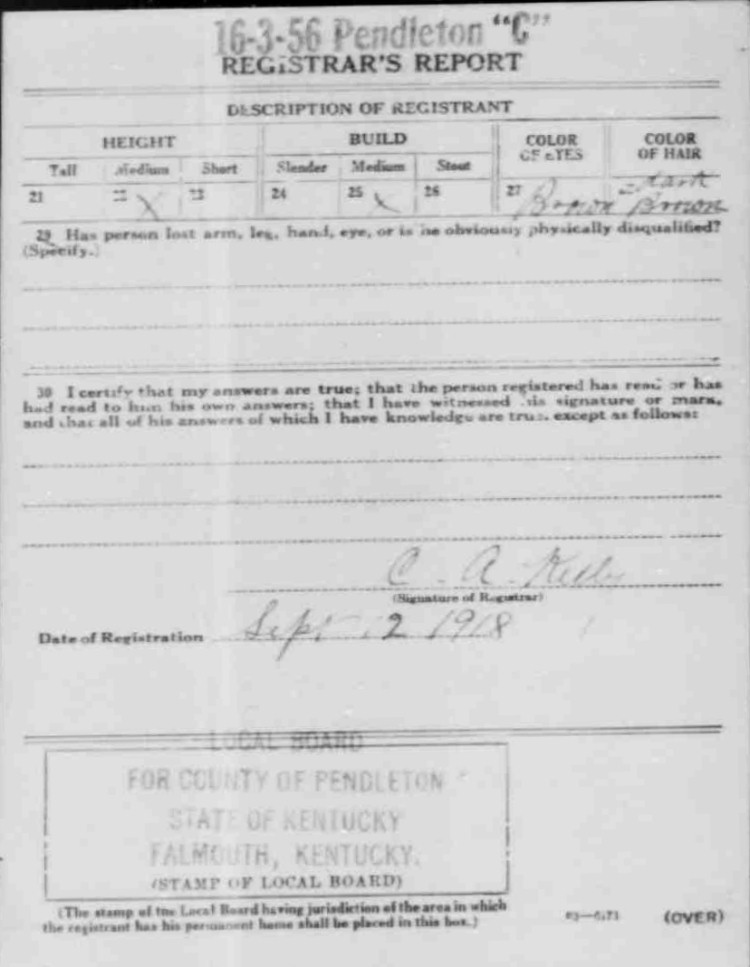 16-3-56 Pendleton "C"
REGISTRAR'S REPORT
DESCRIPTION OF REGISTRANT
HEIGHT BUILD COLOR OF EYES COLOR OF HAIR
Tall Medium Short Slender Medium Stout
21 22 X 23 24 25 X 26 27 Brown 28 dark Brown
29 Has person lost arm, leg, hand, eye, or is he obviously physically disqualified?
(Specify.)
30 I certify that my answers are true; that the person registered has read or has
had read to him his own answers; that I have witnessed his signature or mark,
and that all of his answers of which I have knowledge are true, except as follows:
C. A.
(Signature of Registrar)
Date of Registration Sept 12 1918
LOCAL BOARD
FOR COUNTY OF PENDLETON
STATE OF KENTUCKY
FALMOUTH, KENTUCKY.
(STAMP OF LOCAL BOARD)
(The stamp of the Local Board having jurisdiction of the area in which
the registrant has his permanent home shall be placed in this box.)
(OVER)